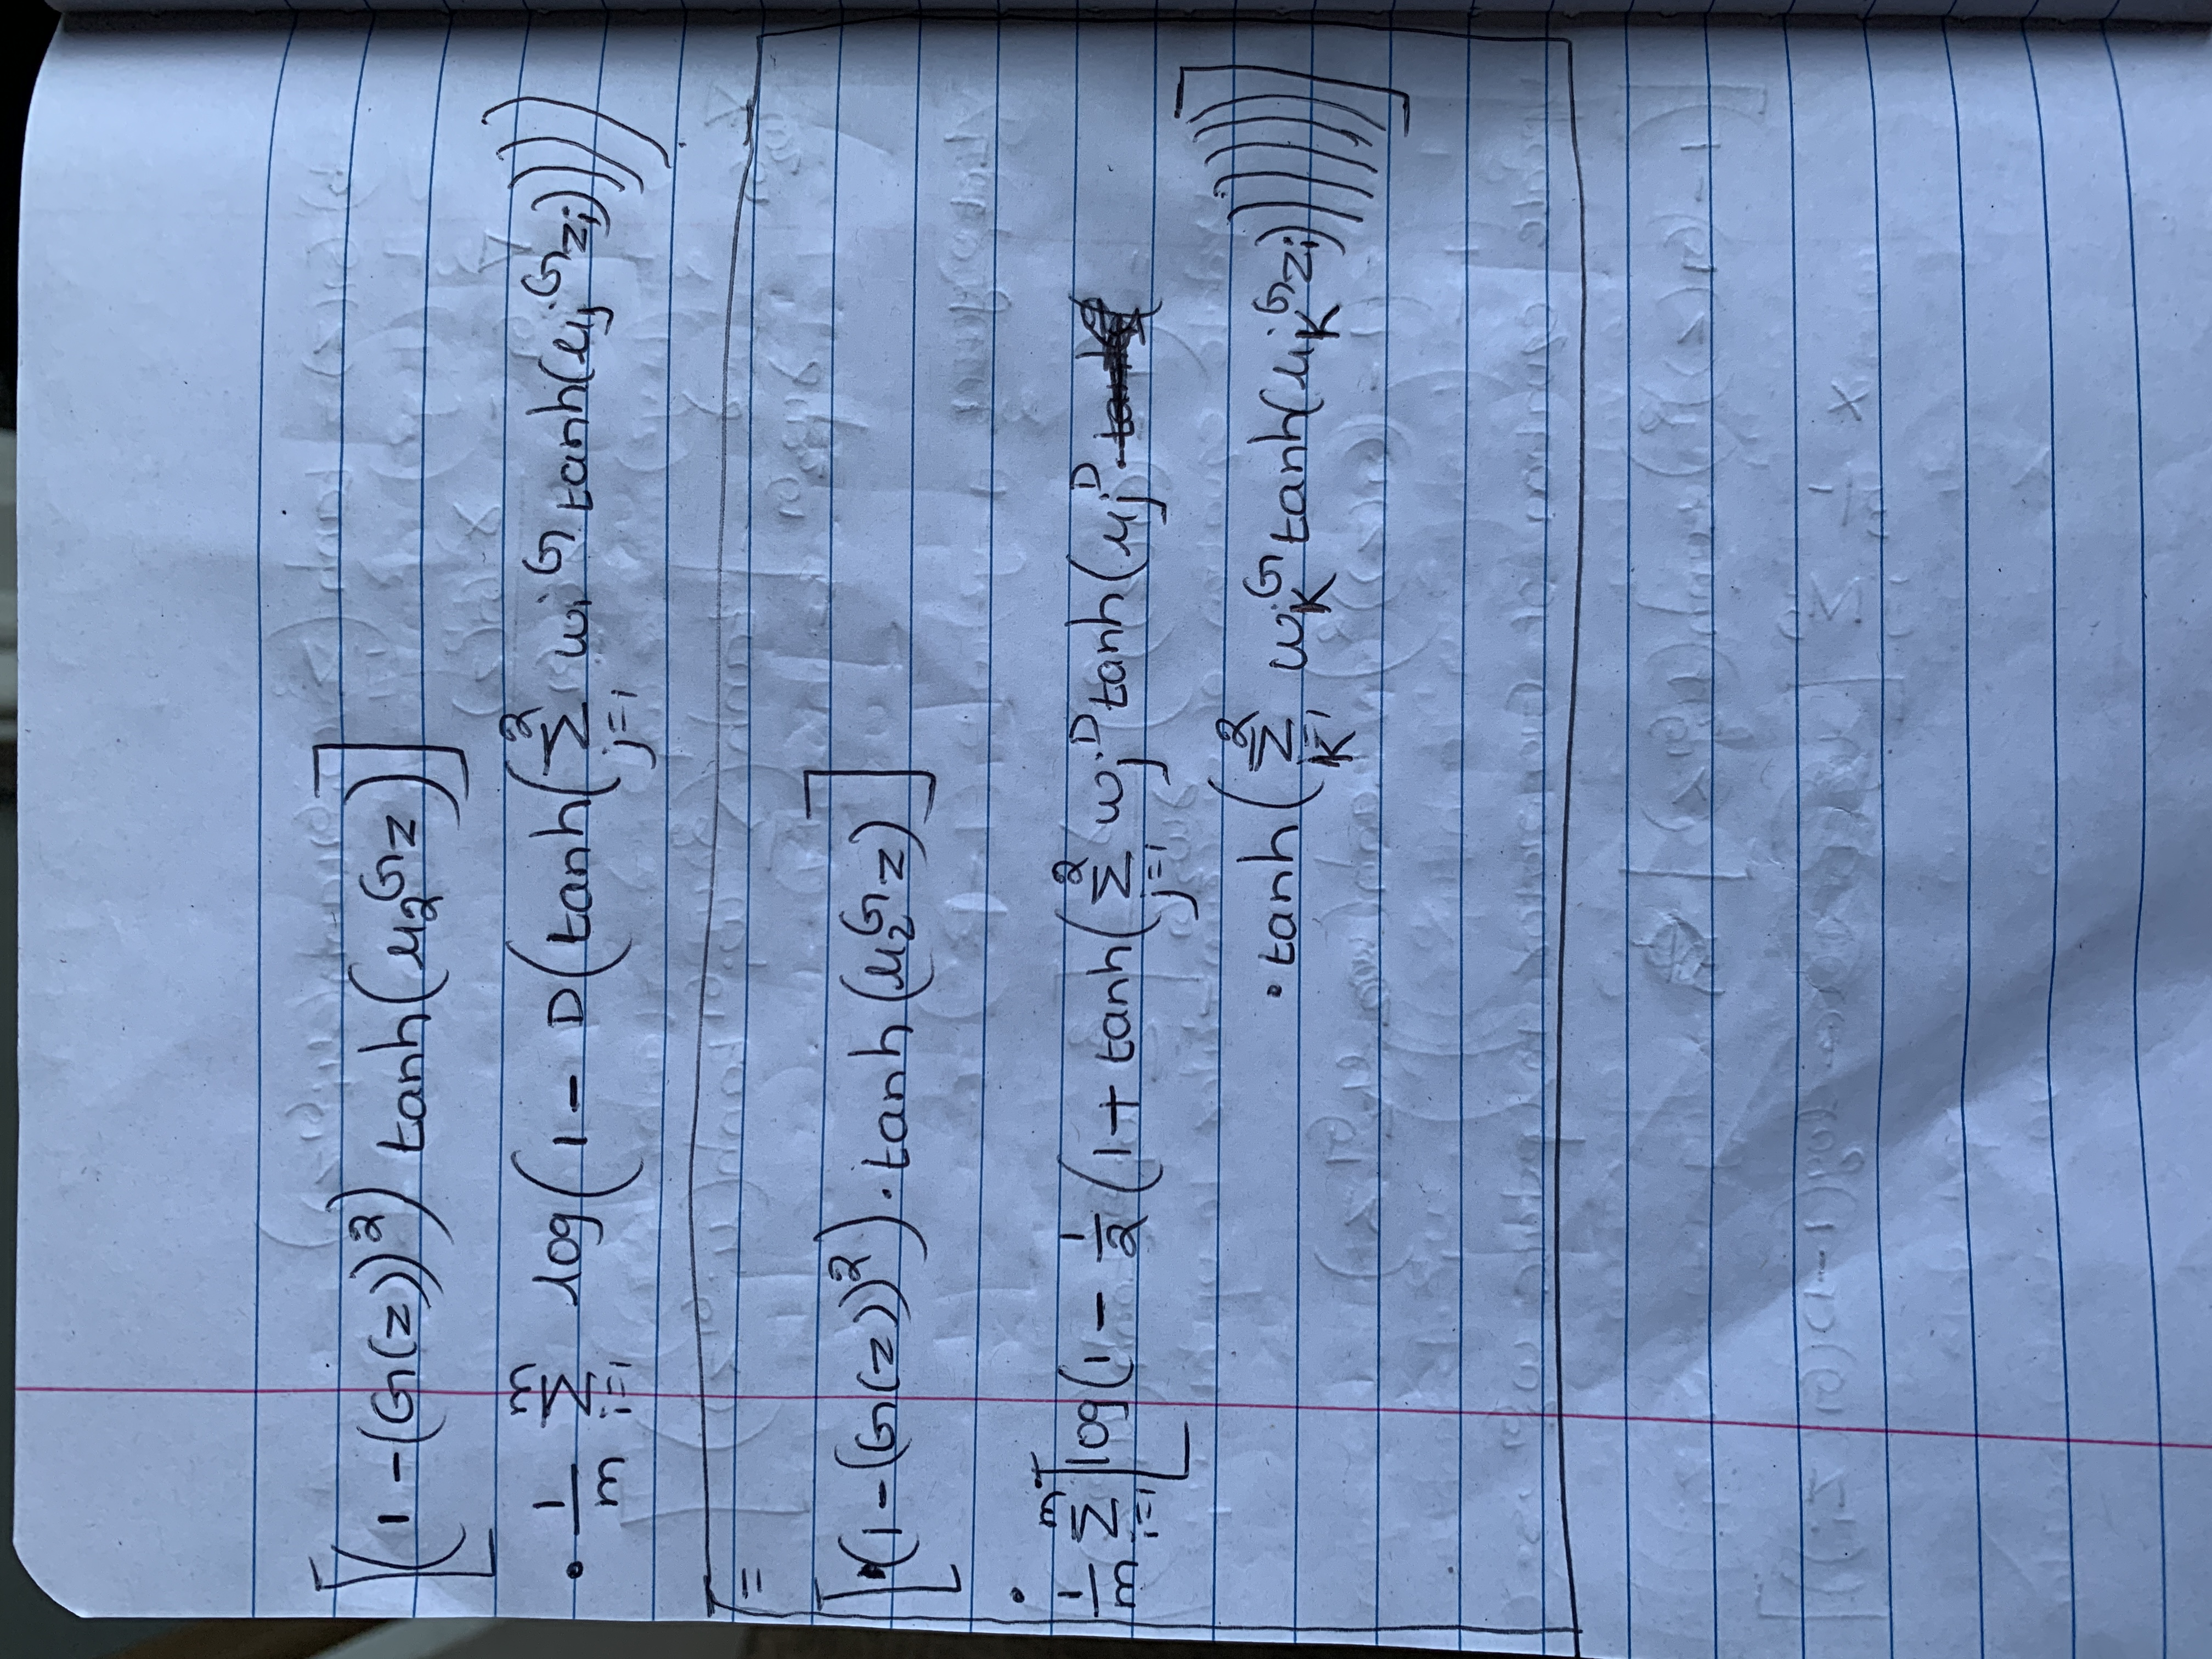 [(1-(G(z))²) tanh(u₂ᴳz)]
• 1/m Σ_{i=1}^{m} log(1 - D(tanh(Σ_{j=1}^{2} wᵢᴳ tanh(uⱼᴳzᵢ))))
=
[(1-(G(z))²)·tanh(u₂ᴳz)]
•
1/m Σ_{i=1}^{m} [log(1 - 1/2 (1 + tanh(Σ_{j=1}^{2} wⱼᴰ tanh(uⱼᴰ
• tanh(Σ_{K=1}^{2} w_Kᴳ tanh(u_Kᴳzᵢ)))))))]